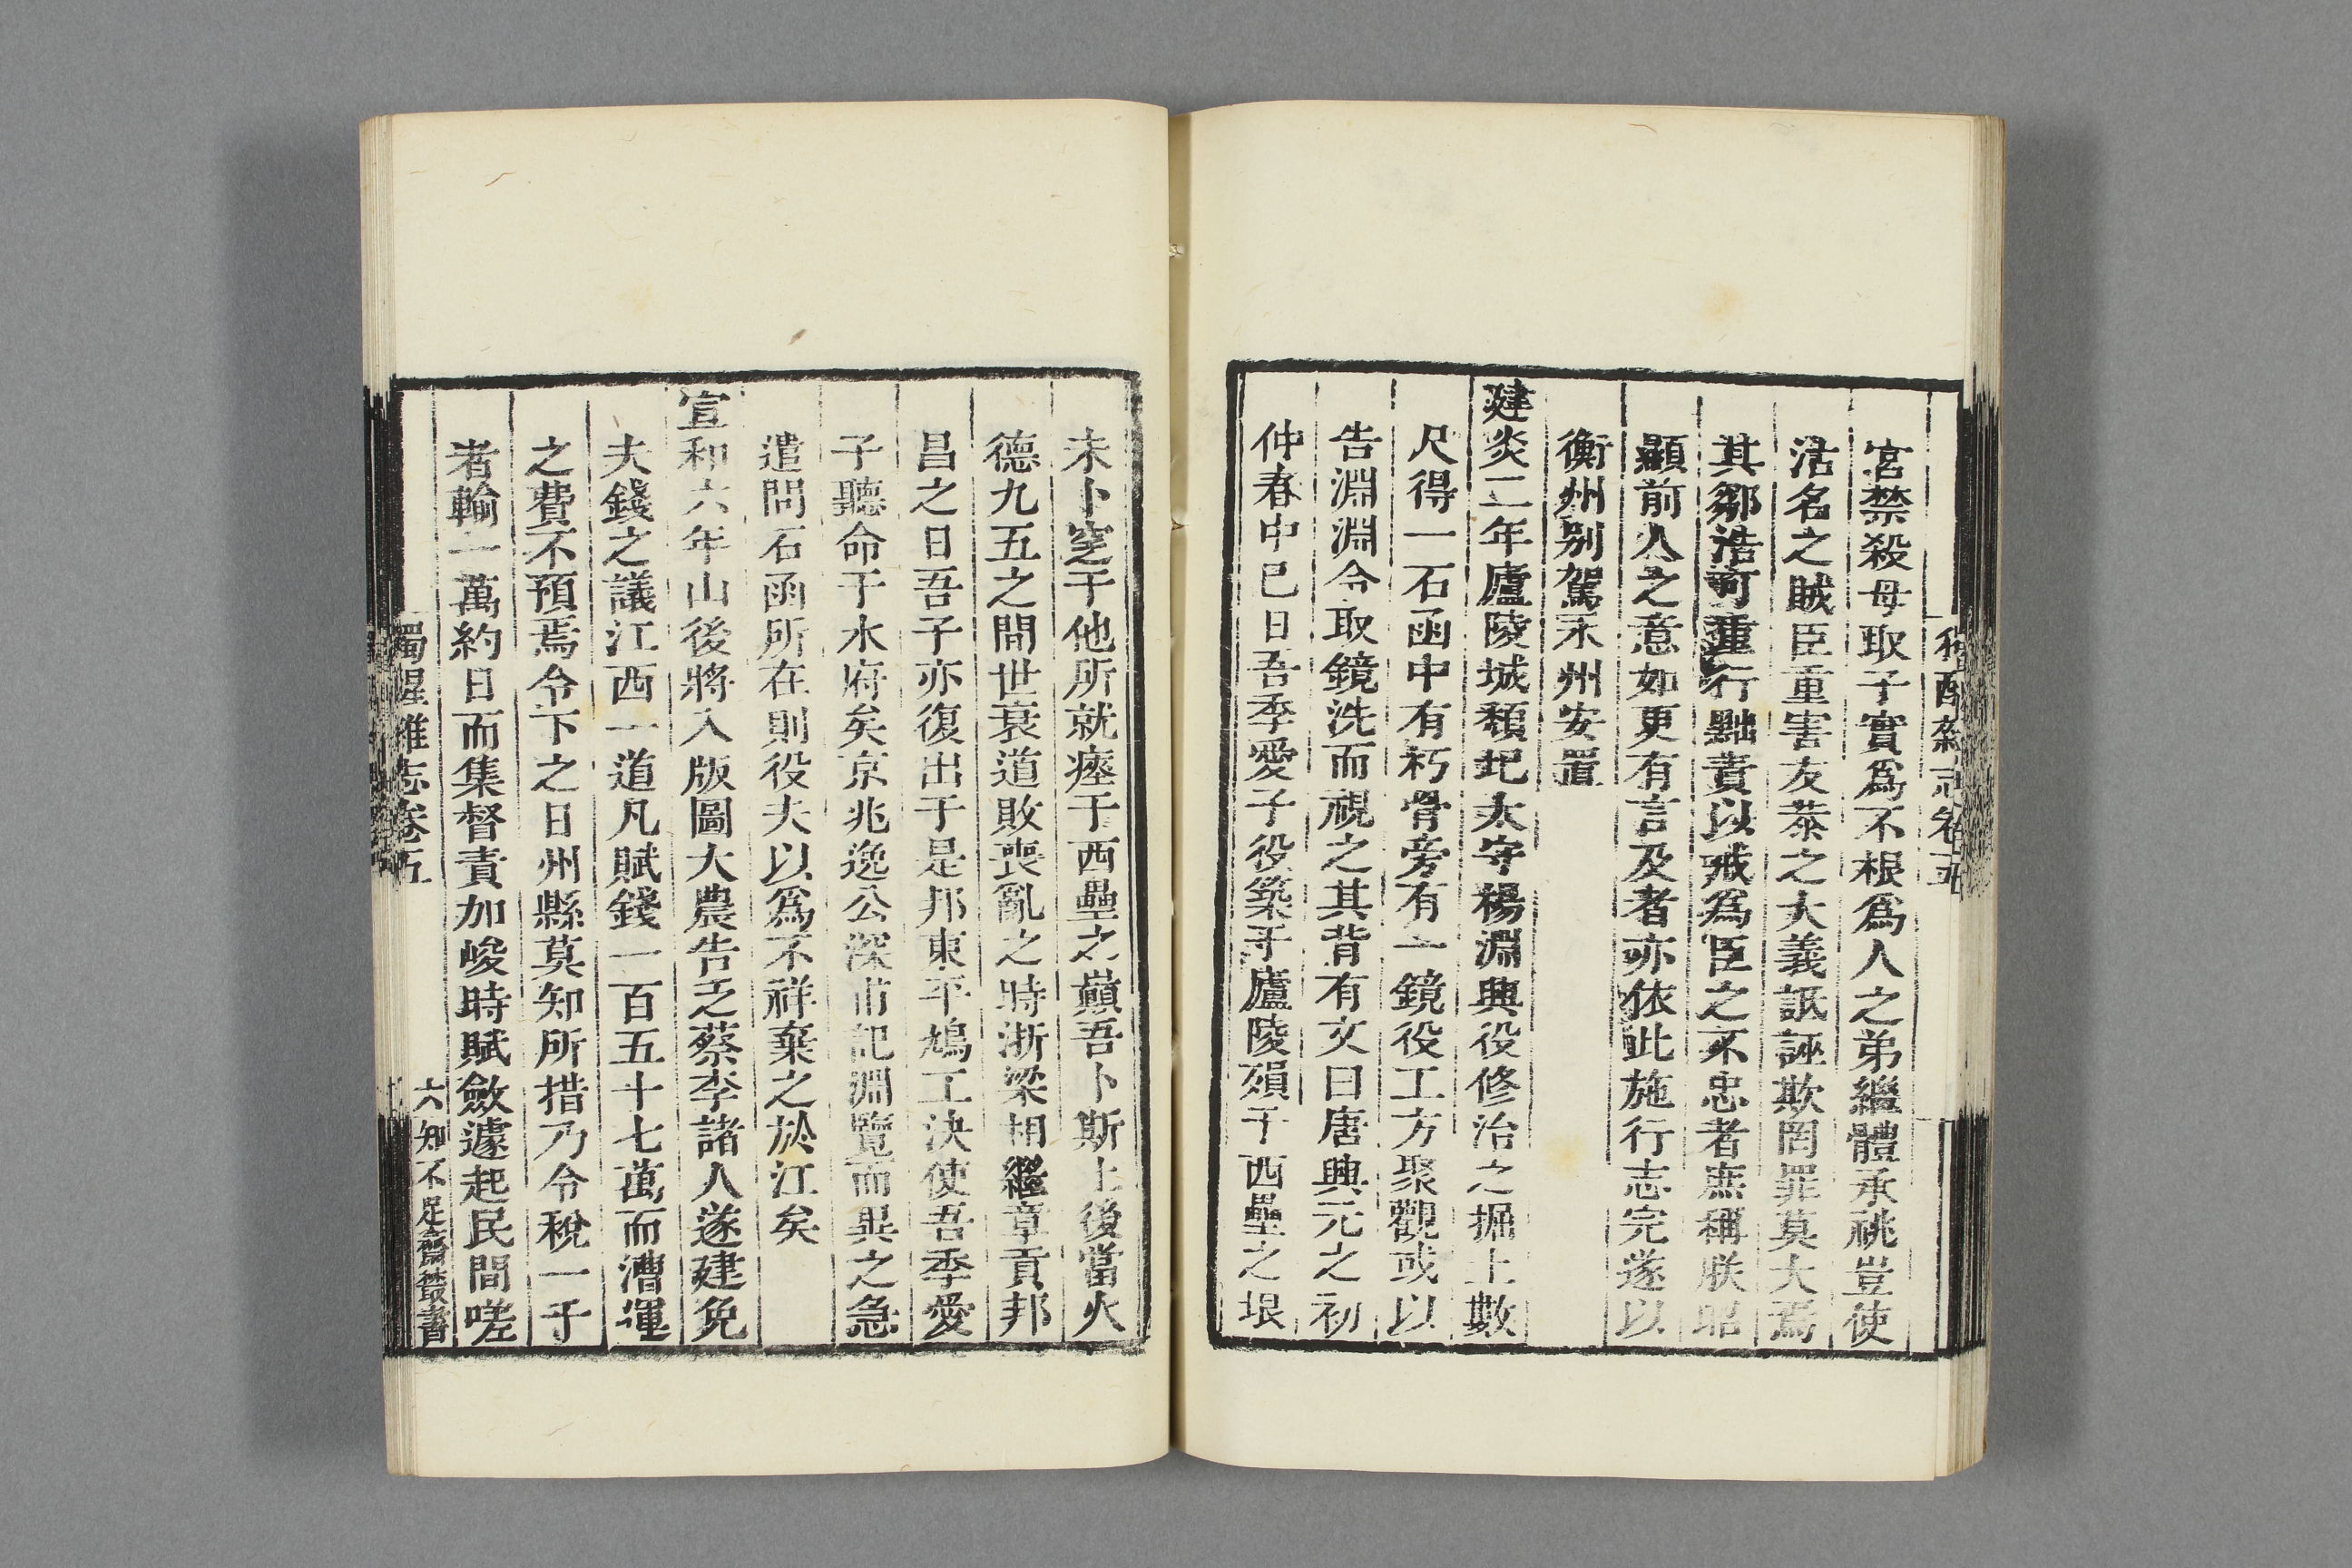 宮禁殺母取子實爲不根爲人之弟繼體承祧豈使
沽名之賊臣重害友恭之大義詆誣欺罔罪莫大焉
其鄒浩可重行黜責以戒爲臣之不忠者庶稱朕昭
顯前人之意如更有言及者亦依此施行志完遂以
衡州别駕永州安置
建炎二年廬陵城頹圯太守楊淵興役修治之掘土數
尺得一石函中有朽骨旁有一鏡役工方聚觀或以
告淵淵令取鏡洗而視之其背有文曰唐興元之初
仲春中巳日吾季愛子役築于廬陵殞于西壘之垠
未卜窆于他所就瘞于西壘之巔吾卜斯土後當火
德九五之間世衰道敗喪亂之時浙梁相繼章貢邦
昌之日吾子亦復出于是邦東平鳩工決使吾季愛
子聽命于水府矣京兆逸公深甫記淵覽而異之急
遣問石函所在則役夫以爲不祥棄之於江矣
宣和六年山後將入版圖大農告乏蔡李諸人遂建免
夫錢之議江西一道凡賦錢一百五十七萬而漕運
之費不預焉令下之日州縣莫知所措乃令稅一千
者輸一萬約日而集督責加峻時賦斂遽起民間嗟
獨醒雜志卷五
六
知不足齋叢書